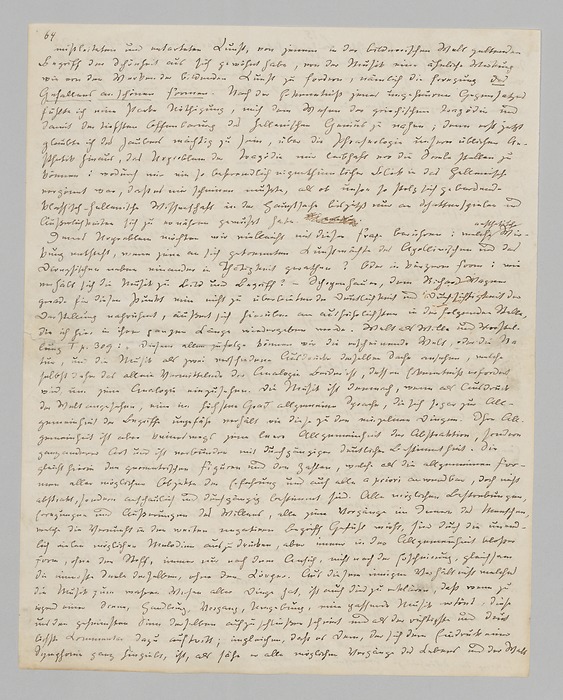 64
missleiteten und entarteten Kunst, von jenem in der bildnerischen Welt geltenden
Begriff der Schönheit aus sich gewöhnt habe, von der Musik eine ähnliche Wirkung
wie von den Werken der bildenden Kunst zu fordern, nämlich die Erregung des
Gefallens an schönen Formen. Nach der Erkenntniss jenes ungeheuren Gegensatzes
fühlte ich eine starke Nöthigung, mich dem Wesen der griechischen Tragödie und
damit der tiefsten Offenbarung des hellenischen Genius zu nahen: denn erst jetzt
glaubte ich des Zaubers mächtig zu sein, über die Phraseologie unserer üblichen Ae-
sthetik hinaus, das Urproblem der Tragödie mir leibhaft vor die Seele stellen zu
können: wodurch mir ein so befremdlich eigenthümlicher Blick in das Hellenische
vergönnt war, dass es mir scheinen musste, als ob unsre so stolz sich gebärdende
klassisch-hellenische Wissenschaft in der Hauptsache bis jetzt nur an Schattenspielen und
Äusserlichkeiten sich zu ernähren gewusst habe.
Jenes Urproblem möchten wir vielleicht mit dieser Frage berühren: welche aesthetische Wir-
kung entsteht, wenn jene an sich getrennten Kunstmächte des Apollinischen und des
Dionysischen neben einander in Thätigkeit gerathen? Oder in kürzerer Form: wie
verhält sich die Musik zu Bild und Begriff? – Schopenhauer, dem Richard Wagner
gerade für diesen Punkt eine nicht zu überbietende Deutlichkeit und Durchsichtigkeit der
Darstellung nachrühmt, äussert sich hierüber am ausführlichsten in der folgenden Stelle,
die ich hier in ihrer ganzen Länge wiedergeben werde. Welt als Wille und Vorstel-
lung I p. 309: „Diesem allen zufolge können wir die erscheinende Welt, oder die Na-
tur, und die Musik als zwei verschiedene Ausdrücke derselben Sache ansehen, welche
selbst daher das allein Vermittelnde der Analogie Beider ist, dessen Erkenntniss erfordert
wird, um jene Analogie einzusehen. Die Musik ist demnach, wenn als Ausdruck
der Welt angesehen, eine im höchsten Grad allgemeine Sprache, die sich sogar zur All-
gemeinheit der Begriffe ungefähr verhält wie diese zu den einzelnen Dingen. Ihre All-
gemeinheit ist aber keineswegs jene leere Allgemeinheit der Abstraktion, sondern
ganz anderer Art und ist verbunden mit durchgängiger deutlicher Bestimmtheit. Sie
gleicht hierin den geometrischen Figuren und den Zahlen, welche als die allgemeinen For-
men aller möglichen Objekte der Erfahrung und auf alle a priori anwendbar, doch nicht
abstrakt, sondern anschaulich und durchgängig bestimmt sind. Alle möglichen Bestrebungen,
Erregungen und Äusserungen des Willens, alle jene Vorgänge im Innern des Menschen,
welche die Vernunft in den weiten negativen Begriff Gefühl wirft, sind durch die unend-
lich vielen möglichen Melodien auszudrücken, aber immer in der Allgemeinheit blosser
Form, ohne den Stoff, immer nur nach dem Ansich, nicht nach der Erscheinung, gleichsam
die innerste Seele derselben, ohne den Körper. Aus diesem innigen Verhältniss welches
die Musik zum wahren Wesen aller Dinge hat, ist auch dies zu erklären, dass wenn zu
irgend einer Scene, Handlung, Vorgang, Umgebung, eine passende Musik ertönt, diese
uns den geheimsten Sinn derselben aufzuschliessen scheint und als der richtigste und deut-
lichste Kommentar dazu auftritt; imgleichen, dass es Dem, der sich dem Eindruck einer
Symphonie ganz hingiebt, ist, als sähe er alle möglichen Vorgänge des Lebens und der Welt